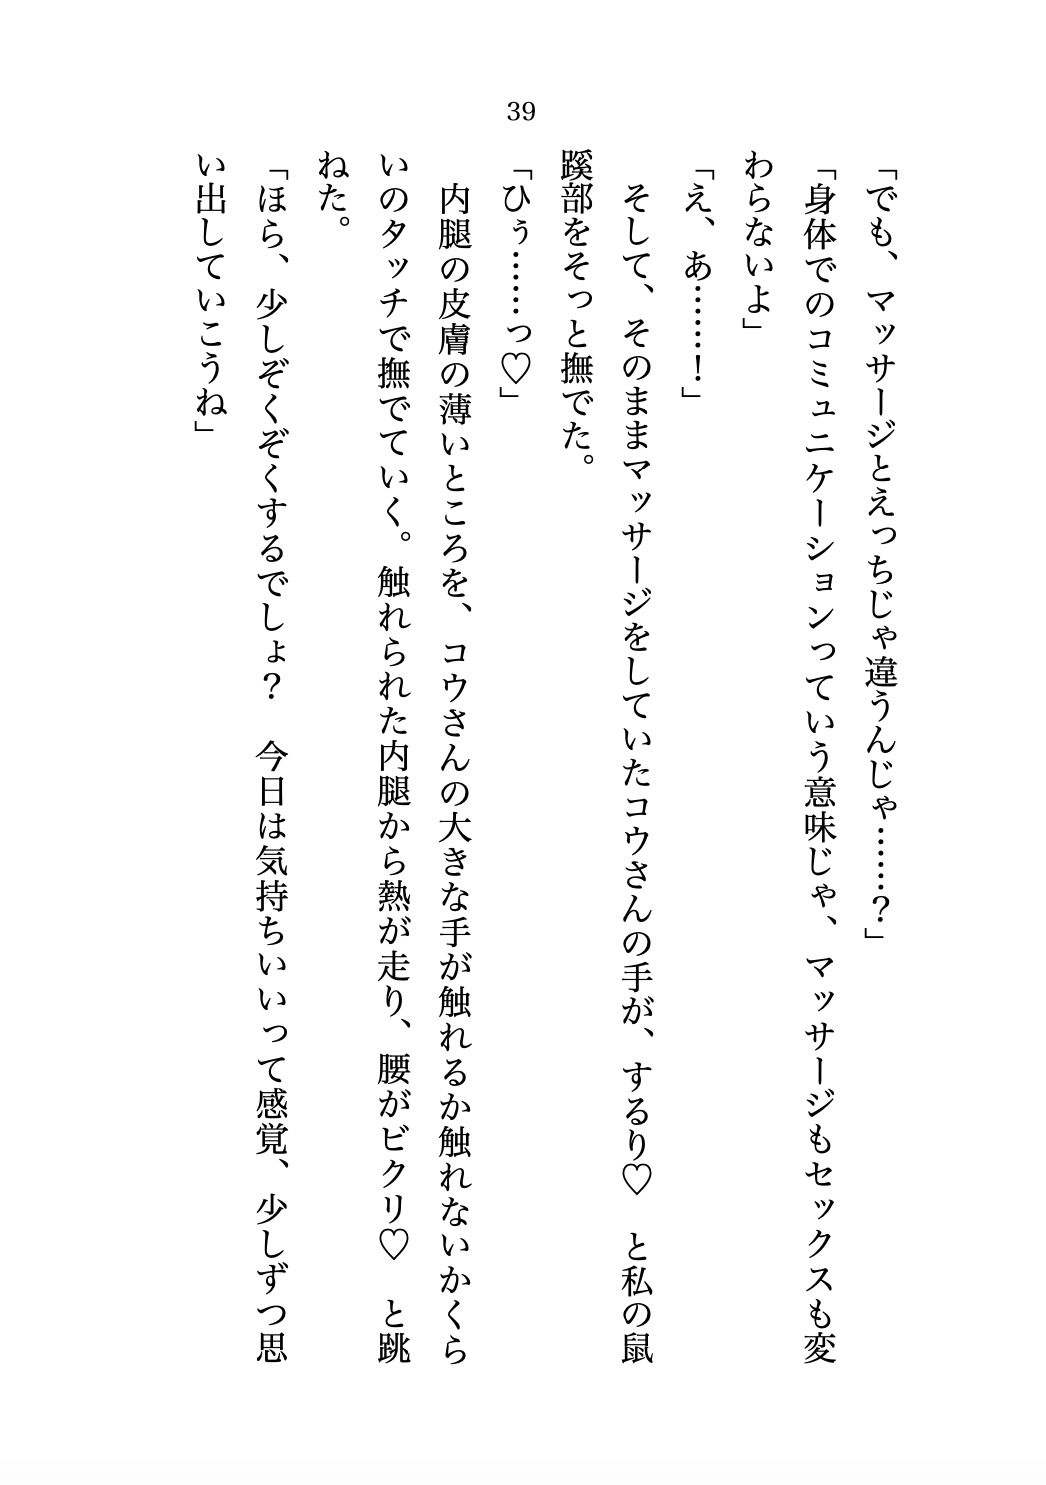 39
「でも、マッサージとえっちじゃ違うんじゃ……？」
「身体でのコミュニケーションっていう意味じゃ、マッサージもセックスも変
わらないよ」
「え、あ……！」
　そして、そのままマッサージをしていたコウさんの手が、するり♡　と私の鼠
蹊部をそっと撫でた。
「ひぅ……っ♡」
　内腿の皮膚の薄いところを、コウさんの大きな手が触れるか触れないかくら
いのタッチで撫でていく。触れられた内腿から熱が走り、腰がビクリ♡　と跳
ねた。
「ほら、少しぞくぞくするでしょ？　今日は気持ちいいって感覚、少しずつ思
い出していこうね」